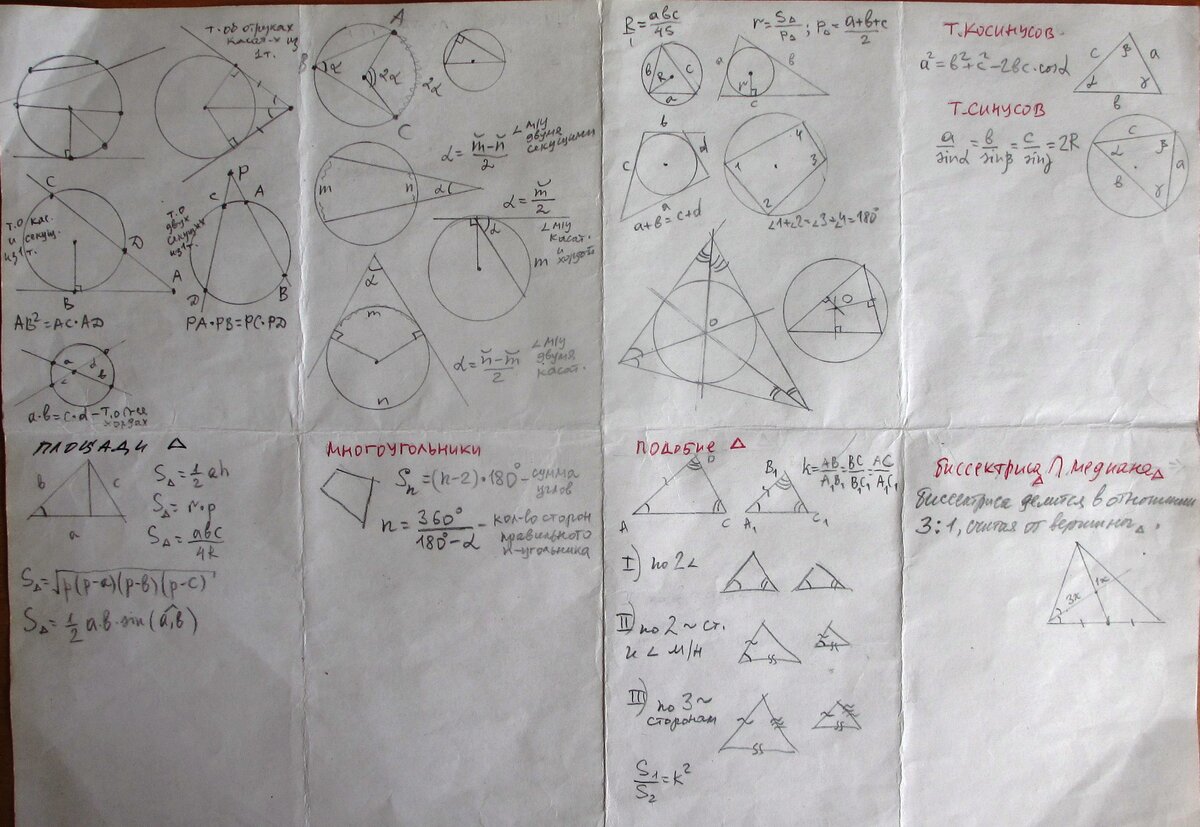 т. об отрезках
касат-х из
1т.
т. о кас.
и секущ.
из 1 т.
C
D
A
B
AB² = AC·AD
т. о
двух
секущих
из 1т.
P
C
A
D
B
PA·PB = PC·PD
a
d
c
b
a·b = c·d – т. о
хордах
A
B
α
2α
2α
C
m
n
α
α = (m̆ − n̆)/2
∠ м/у
двумя
секущими
α = m̆/2
∠ м/у
касат.
и
хордой
α
m
α
m
n
α = (n̆ − m̆)/2
∠ м/у
двумя
касат.
R = abc/4S
1
r = S△/p△ ; p△ = (a+b+c)/2
в
R
c
a
a
в
r
c
в
c
d
a
a+b = c+d
1
4
3
2
∠1+∠2 = ∠3+∠4 = 180°
O
O
Т. КОСИНУСОВ
a² = в² + c² − 2вc·cosα
c
β
a
α
γ
в
Т. СИНУСОВ
a/sinα = в/sinβ = c/sinγ = 2R
c
α
β
a
в
γ
ПЛОЩАДИ △
в
c
a
S△ = 1/2 ah
S△ = r·p
S△ = abc/4R
S△ = √p(p−a)(p−в)(p−c)
S△ = 1/2 a·в·sin(a,^в)
МНОГОУГОЛЬНИКИ
Sn = (n−2)·180° – сумма
углов
n = 360°/(180°−α) – кол-во сторон
правильного
n-угольника
ПОДОБИЕ △
A
C
B₁
A₁
C₁
k = AB/A₁B₁ = BC/B₁C₁ = AC/A₁C₁
I) по 2 ∠
II) по 2 ~ ст.
и ∠ м/н
III) по 3 ~
сторонам
S₁/S₂ = k²
БИССЕКТРИСА △ Л. МЕДИАНА △
биссектриса делится в отношении
3:1, считая от вершины △.
3x
1x